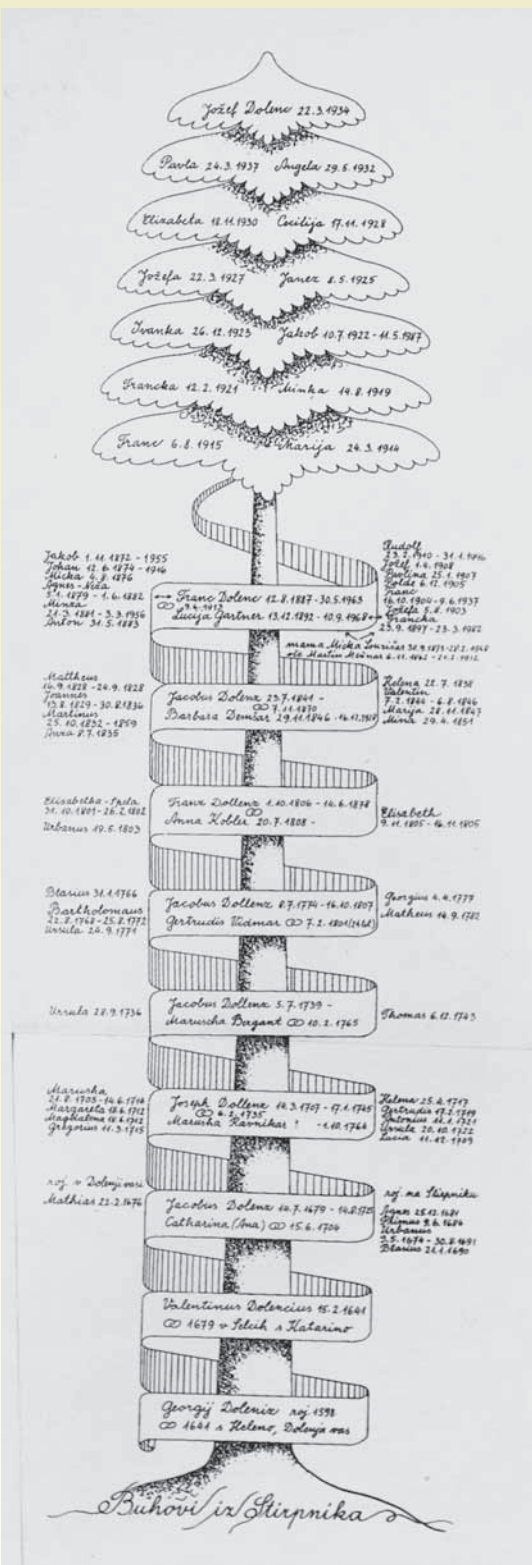 Jožef Dolenc 22.3.1934
Pavla 24.3.1937 Angela 29.5.1932
Elizabeta 18.11.1930 Cecilija 17.11.1928
Jožefa 22.3.1927 Janez 8.5.1925
Ivanka 26.12.1923 Jakob 10.7.1922 - 11.5.1987
Francka 12.2.1921 Minka 14.8.1919
Franc 6.8.1915 Marija 24.3.1914
Jakob 1.11.1872 - 1955
Johan 12.6.1874 - 1916
Micka 4.8.1876
Agnes - Neža
5.1.1879 - 1.6.1882
Minza
21.3.1881 - 3.3.1956
Anton 31.5.1883
Franc Dolenc 12.8.1887 - 30.5.1963
Lucija Gartner 13.12.1892 - 10.9.1968
Rudolf
Jožef 1.4.1908
Pavlina 25.1.1907
Polde 6.12.1905
Franc
16.10.1904 - 9.6.1937
Jožefa 5.8.1903
Francka
23.9.1897 - 23.3.1982
mama Micka
oče Martin
Mattheus
16.9.1828 - 24.9.1828
Joannes
13.8.1829 - 30.8.1836
Martinus
25.10.1832 - 1859
Anza 8.7.1835
Jacobus Dolenz 23.7.1841 -
7.11.1870
Barbara Demšar 29.11.1846 -
Helena 22.7.1838
Valentin
7.2.1844 - 6.8.1846
Marija 28.11.1847
Mina 29.4.1851
Elisabetha - Špela
31.10.1801 - 26.2.1802
Urbanus 19.5.1803
Franz Dollenz 1.10.1806 - 14.6.1878
Anna Kobler 20.7.1808 -
Elisabeth
9.11.1805 - 16.11.1805
Blasius 31.1.1766
Bartholomäus
22.8.1768 - 25.8.1772
Ursula 24.9.1771
Jacobus Dollenz 8.7.1774 - 16.10.1807
Gertrudis Vidmar 7.2.1801
Georgius 4.4.1777
Matheus 14.9.1782
Ursula 28.9.1736
Jacobus Dollenz 5.7.1739 -
Maruscha Bergant 10.2.1765
Thomas 6.12.1743
Marusha
21.8.1705 - 14.6.1714
Margareta 18.6.1712
Magdalena 18.6.1712
Gregorius 11.3.1715
Joseph Dollenz 14.3.1707 - 17.1.1745
6.2.1735
Marusha Ravnikar ! - 1.10.1764
Helena 25.4.1717
Gertrudis 17.2.1719
Antonius 11.1.1721
Ursula 20.10.1722
Lucia 11.12.1709
roj. v Dolenji vasi
Mathias 22.2.1676
Jacobus Dolenz 14.7.1679 -
Catharina (Ana) 15.6.1704
roj. na Štirpniku
Agnes 25.12.1681
Primus 9.6.1684
Urbanus
Blasius 21.1.1690
Valentinus Dolencius 15.2.1641
1679 v Selcih s Katarino
Georgij Doleniz roj. 1598
1641 s Heleno, Dolenja vas
Buhovi iz Štirpnika